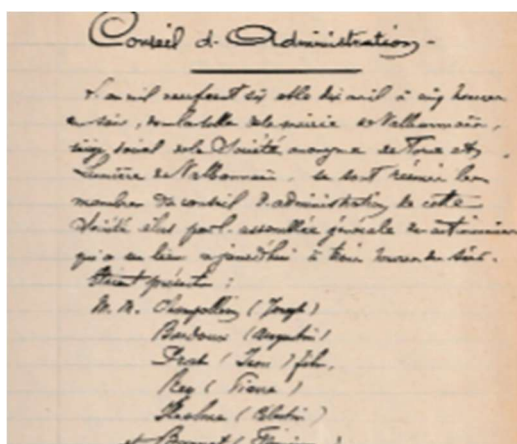 Conseil d'Administration -
L'an mil neuf cent six et le dix avril à cinq heures
du soir, dans la salle de la mairie de Valbonnais,
siège social de la Société anonyme de Force et
Lumière de Valbonnais, se sont réunis les
membres du conseil d'administration de cette
Société élus par l'assemblée générale
qui a eu lieu aujourd'hui à trois heures du soir.
Etaient présents :
M. M. Champollion (Joseph)
(Augustin)
Prat (Jean) fils,
Rey (Pierre)
(Célestin)
et Bonnet